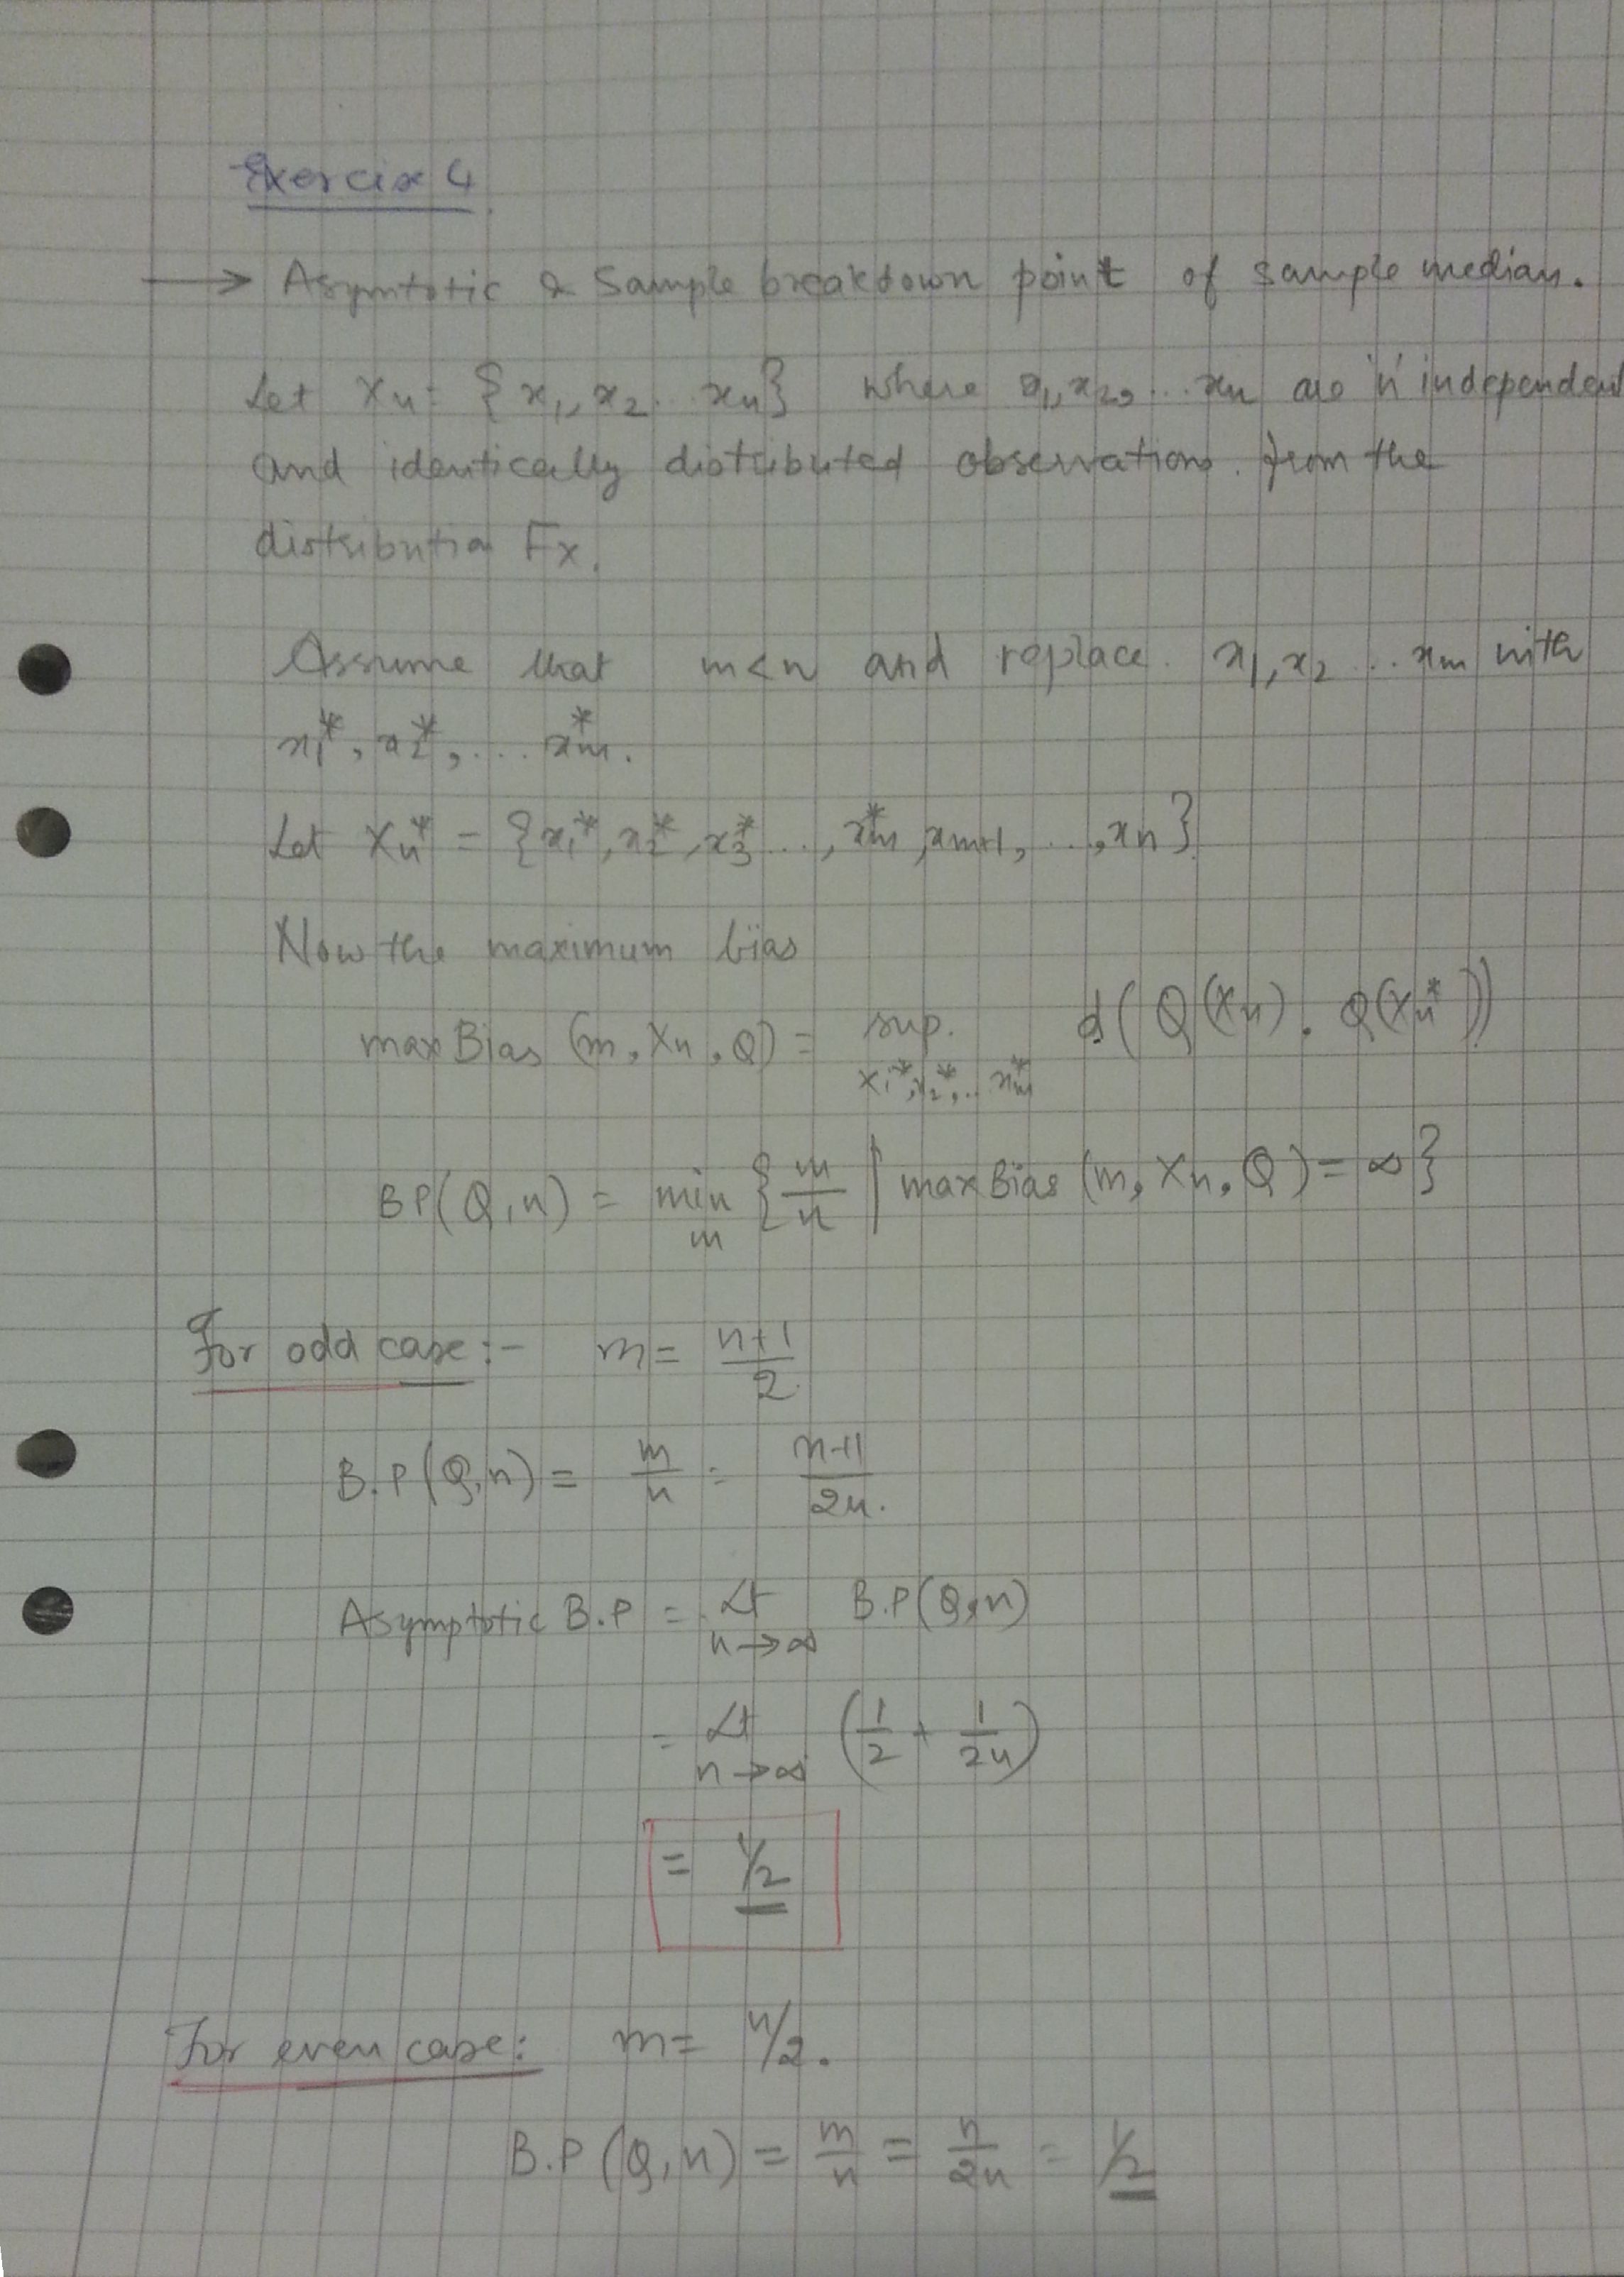 Exercise 4
→ Asymtotic & Sample breakdown point of sample median.
Let Xn = {x1, x2 ... xn} where x1, x2, ... xn are 'n' independent
and identically distributed observations from the
distribution Fx.
Assume that m<n and replace x1, x2 ... xm with
x1*, x2*, ... xm*.
Let Xn* = {x1*, x2*, x3* ..., xm*, xm+1, ..., xn}
Now the maximum bias
maxBias (m, Xn, Q) = sup. d(Q(Xn), Q(Xn*))
x1*, x2*, .. xm*
BP(Q, n) = min {m/n | maxBias (m, Xn, Q) = ∞}
m
For odd case :- m = n+1/2
B.P(Q, n) = m/n = n+1/2n.
Asymptotic B.P = Lt B.P(Q, n)
n→∞
= Lt (1/2 + 1/2n)
n→∞
= 1/2
For even case: m = n/2.
B.P(Q, n) = m/n = n/2n = 1/2